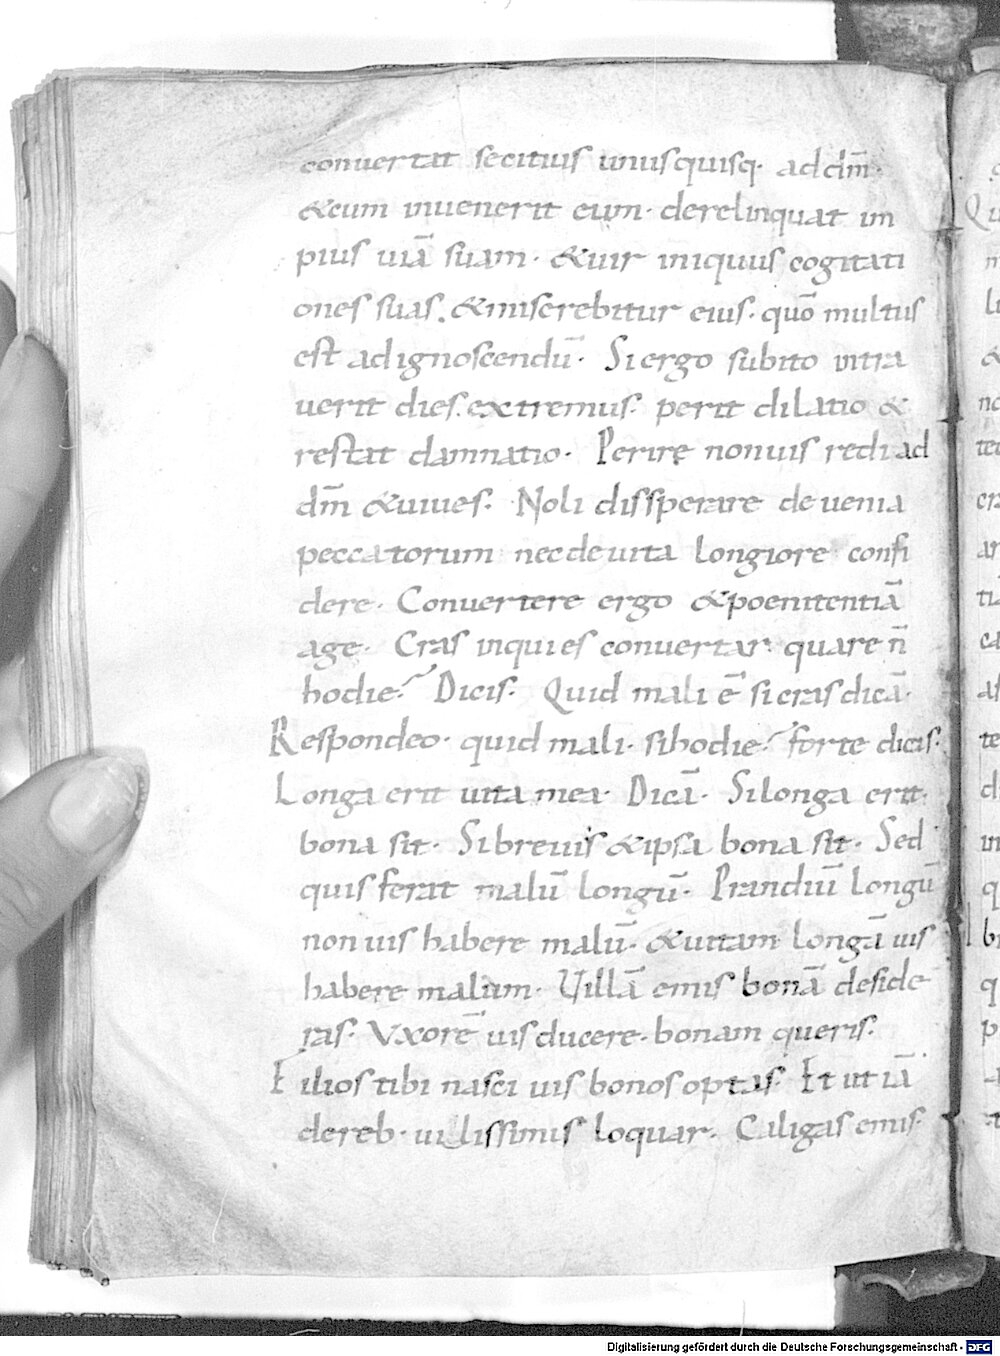 conuertat se citius unusquisq· ad dm̄·
&cum inuenerit eum· derelinquat im
pius uiā suam· & uir iniquus cogitati
ones suas. & miserebitur eius· quō multus
est ad ignoscendū· Si ergo subito intra
uerit dies extremus· perit dilatio &
restat damnatio· Perire non uis redi ad
dm̄ & uiues· Noli dissperare de uenia
peccatorum nec de uita longiore confi
dere· Conuertere ergo & poenitentiā
age· Cras inquies conuertar· quare n̄
hodie? Dicis· Quid mali ē si cras dicā·
Respondeo· quid mali· si hodie? forte dicis·
Longa erit uita mea· Dicā· Si longa erit·
bona sit· Si breuis & ipsa bona sit· Sed
quis ferat malū longū· Prandiū longū
non uis habere malū· & uitam longā uis
habere malam· Uillā emis bonā deside
ras· Vxorē uis ducere· bonam queris·
Filios tibi nasci uis bonos optas· Et ut iā
dereb· uilissimis loquar· Caligas emis·
Digitalisierung gefördert durch die Deutsche Forschungsgemeinschaft - DFG